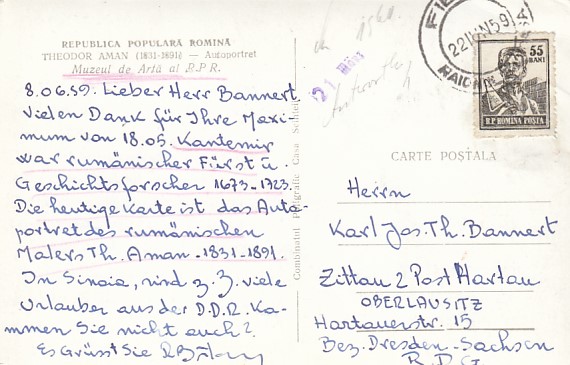 REPUBLICA POPULARĂ ROMÎNĂ
THEODOR AMAN (1831-1891) — Autoportret
Muzeul de Artă al R.P.R.
8.06.59. Lieber Herr Bannert
Vielen Dank für Ihre Maxi-
mum von 18.05. Kantemir
war rumänischer Fürst u.
Geschichtsforscher 1673-1723.
Die heutige Karte ist das Auto-
portret des rumänischen
Malers Th. Aman -1831-1891.
In Sinaia, sind z. Z. viele
Urlauber aus der D.D.R. Ka-
mmen Sie nicht auch?
Es Grüsst Sie
Combinatul Poligrafic Casa Scînteii
21
22 IUN 59
55
BANI
R.P. ROMINA POSTA
CARTE POȘTALA
Herrn
Karl Jos. Th. Bannert
Zittau 2 Post Hartau
OBERLAUSITZ
Hartauerstr. 15
Bez. Dresden-Sachsen
R.D.G.